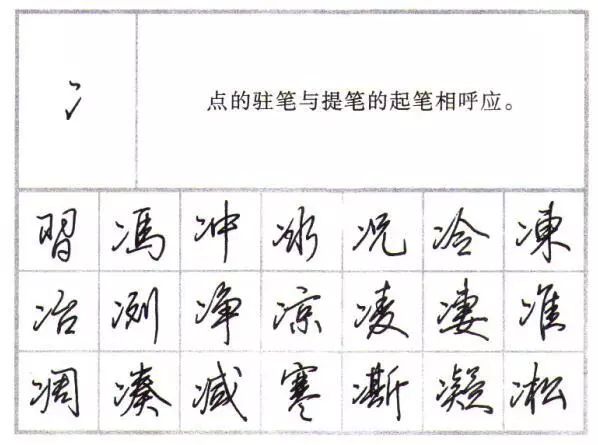 冫
点的驻笔与提笔的起笔相呼应。
習 馮 冲 冰 况 冷 凍
冶 冽 净 凉 凌 凄 准
凋 凑 减 寒 凘 凝 凇